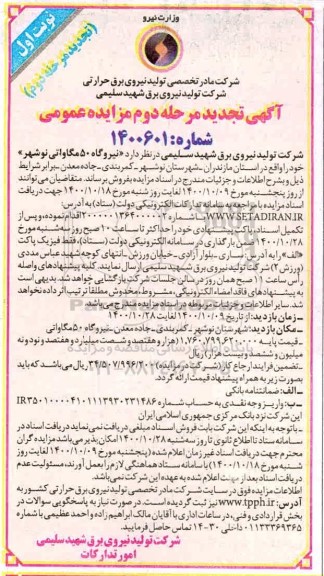 وزارت نیرو
نوبت اول
(تجدید مرحله دوم)
شرکت مادر تخصصی تولید نیروی برق حرارتی
شرکت تولید نیروی برق شهید سلیمی
آگهی تجدید مرحله دوم مزایده عمومی
شماره: ۱۴۰۰۶۰۱
شرکت تولید نیروی برق شهید سلیمی در نظر دارد «نیروگاه ۵۰ مگاواتی نوشهر»
خود را واقع در استان مازندران ـ شهرستان نوشهر ـ کمربندی ـ جاده معدن ـ برابر شرایط
ذیل و بشرح اطلاعات و جزئیات مندرج در اسناد مزایده بفروش برساند. متقاضیان می‌توانند
از روز پنجشنبه مورخ ۱۴۰۰/۱۰/۰۹ لغایت روز شنبه مورخ ۱۴۰۰/۱۰/۱۸ جهت دریافت
اسناد مزایده با مراجعه به سامانه تدارکات الکترونیکی دولت (ستاد) به آدرس:
WWW.SETADIRAN.IR با شماره اقدام نموده و پس از
تکمیل اسناد، پاکت پیشنهادی خود را حداکثر تا ساعت ۱۰ صبح روز سه‌شنبه مورخ
۱۴۰۰/۱۰/۲۸ ضمن بارگذاری در سامانه الکترونیکی دولت (ستاد)، فقط فیزیک پاکت
«الف» را به آدرس ساری ـ بلوار آزادی ـ خیابان ورزش ـ انتهای کوچه شهید عباس مددی
(ورزش ۲) شرکت تولید نیروی برق شهید سلیمی ارسال نمایند. کلیه پیشنهادهای واصله
رأس ساعت ۱۱ صبح همان روز در سالن جلسات شرکت بازگشایی خواهد شد. بدیهی است
به پیشنهادهای فاقد امضاء الکترونیکی، مشروط و مخدوش مطلقاً ترتیب اثر داده نخواهد
شد. سایر اطلاعات و جزئیات مربوطه در اسناد مزایده مندرج می‌باشد.
ـ زمان بازدید: از تاریخ ۱۴۰۰/۱۰/۰۹ لغایت ۱۴۰۰/۱۰/۲۸
ـ مکان بازدید: شهرستان نوشهر ـ کمربندی ـ جاده معدن ـ نیروگاه ۵۰ مگاواتی
ـ قیمت پایه (هزار و هفتصد و شصت میلیارد و هفتصد و نود و نه
میلیون و ششصد و بیست هزار) ریال
ـ تضمین فرایند ارجاع کار (شرکت در مزایده) ریال می‌باشد که باید
بصورت زیر به همراه پیشنهاد قیمت ارائه گردد.
ـ الف: ضمانتنامه بانکی
ـ ب: واریز وجه نقدی به حساب شماره IR۳۵۰۱۰۰۰۰۴۱۰۱۱۱۳۹۳۰۲۳۱۴۸۶
این شرکت نزد بانک مرکزی جمهوری اسلامی ایران
ـ با توجه به اینکه این شرکت بابت فروش اسناد مبلغی دریافت نمی‌نماید دریافت اسناد در
سامانه ستاد تا اطلاع ثانوی تا روز سه‌شنبه ۱۴۰۰/۱۰/۲۸ امکان پذیر می‌باشد مزایده گران
محترم جهت دریافت اسناد غیر زمان اعلام شده (پنجشنبه مورخ ۱۴۰۰/۱۰/۰۹ لغایت روز
شنبه مورخ ۱۴۰۰/۱۰/۱۸) با سامانه ستاد هماهنگی لازم را بعمل آورند، مسئولیت عدم
دریافت اسناد بعد از مهلت اعلام شده به عهده این شرکت نمی‌باشد.
اطلاعات مزایده فوق در سایت شرکت مادر تخصصی تولید نیروی برق حرارتی کشور به
آدرس: www.tpph.ir نیز ثبت گردیده است. در صورت نیاز به پاسخگویی سوالات در
بخش قراردادی و فنی، در ساعات اداری با آقایان مالک ابراهیم زاده و احمد عظیمی با شماره
۰۱۱۳۳۳۶۹۳۶۵ داخلی ۳۰-۱۴ تماس حاصل فرمایید.
شرکت تولید نیروی برق شهید سلیمی
امور تدارکات